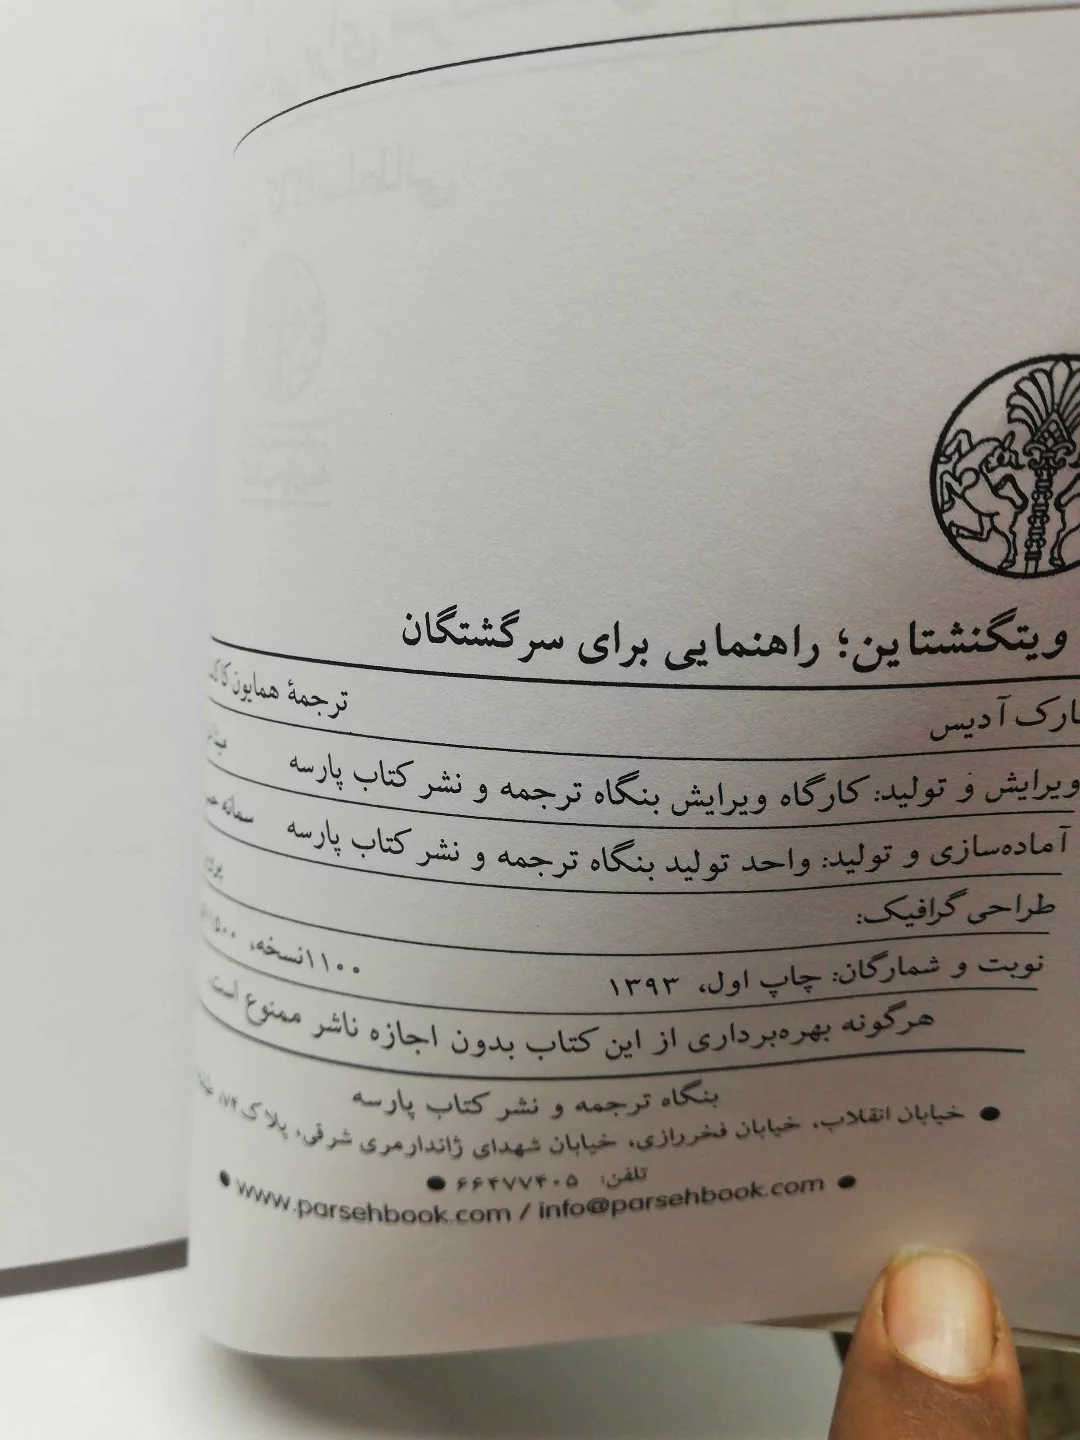 ویتگنشتاین؛ راهنمایی برای سرگشتگان
آدیس ترجمهٔ همایون
ویرایش و تولید: کارگاه ویرایش بنگاه ترجمه و نشر کتاب پارسه
آماده‌سازی و تولید: واحد تولید بنگاه ترجمه و نشر کتاب پارسه سمانه
طراحی گرافیک:
نوبت و شمارگان: چاپ اول، ۱۳۹۳ ۱۱۰۰نسخه،
هرگونه بهره‌برداری از این کتاب بدون اجازه ناشر ممنوع است.
بنگاه ترجمه و نشر کتاب پارسه
● خیابان انقلاب، خیابان فخررازی، خیابان شهدای ژاندارمری شرقی، پلاک ۷۴،
تلفن: ۶۶۴۷۷۴۰۵ ●
● www.parsehbook.com / info@parsehbook.com ●